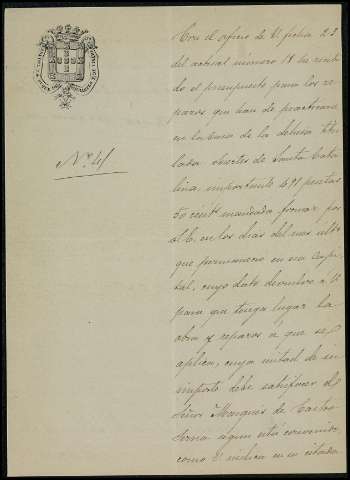 Nº 41
Con el oficio de V. fecha 23
del actual número 18 he recibi
do el presupuesto para los re
paros que han de practicarse
en la Casa de la dehesa titu
lada Suertes de Santa Cata
lina, importante 491 pesetas
50 cénts mandada formar por
V. en los dias del mes ultº
que permanecio en esa capi
tal, cuyo dato devuelvo á V.
para que tenga lugar la
obra y reparos á que se
aplica, cuya mitad de su
importe debe satisfacer el
Señor Marques de Castro
Serna segun está convenido
como V. indica en su citado